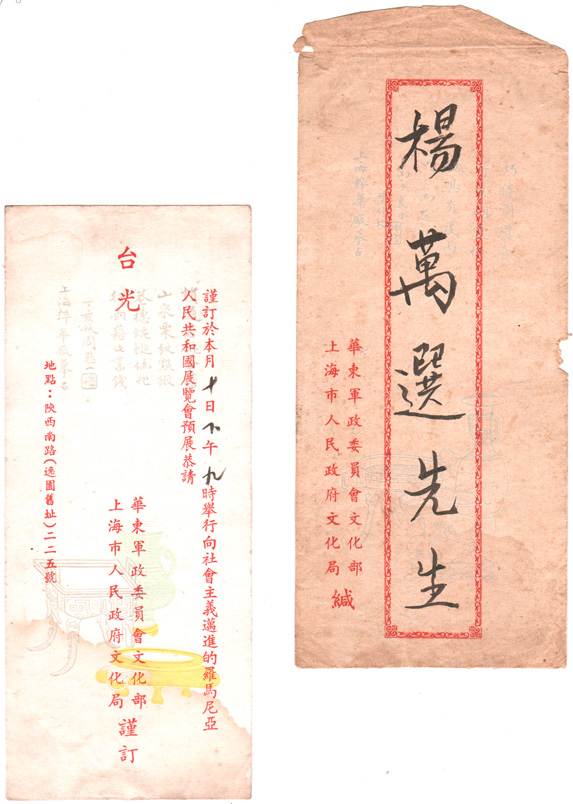 謹訂於本月十日下午九時舉行向社會主義邁進的羅馬尼亞
人民共和國展覽會預展恭請
台光
華東軍政委員會文化部
上海市人民政府文化局 謹訂
地點:陝西南路(逸園舊址)二二五號
楊萬選先生
華東軍政委員會文化部
上海市人民政府文化局 緘